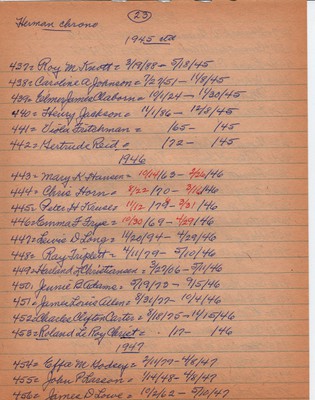 Herman Chrono
(23)
1945 ctd
437= Roy M. Knott= 2/19/88 - 9/18/45
438= Caroline A Johnson= 7/27/51 - 11/8/45
439= Elmer James Claborn= 10/1/24 - 11/30/45
440= Henry Jackson= 11/1/86 - 12/8/45
441= Viola Fritchman= /65 - /45
442= Gertrude Reid= /72 - /45
1946
443= Mary K Hansen= 10/14/63 - 2/26/46
444= Chris Horn= /70 - 3/16/46
445= Peter H 11/12/ - 3/31/46
446= Emma F Frye= 10/30/69 - 4/29/46
447= D Long= 11/20/94 - 4/29/46
448= Ray Triplett= 4/11/79 - 5/10/46
449= Harland L Christiansen= 2/27/06 - 9/11/46
450= Jennie B Adams= 9/19/73 - 9/15/46
451= James Lewis Allen= 8/31/77 - 10/4/46
452= Charles Clayton Carter= 8/18/75 - 11/25/46
453= Roland Le Roy Christ= /17- /46
1947
454= Effie M. Godsey= 2/14/77 - 4/5/47
455= John P. Larson= 1/14/48 - 4/8/47
456= James D Lowe= 1/9/62 - 9/10/47